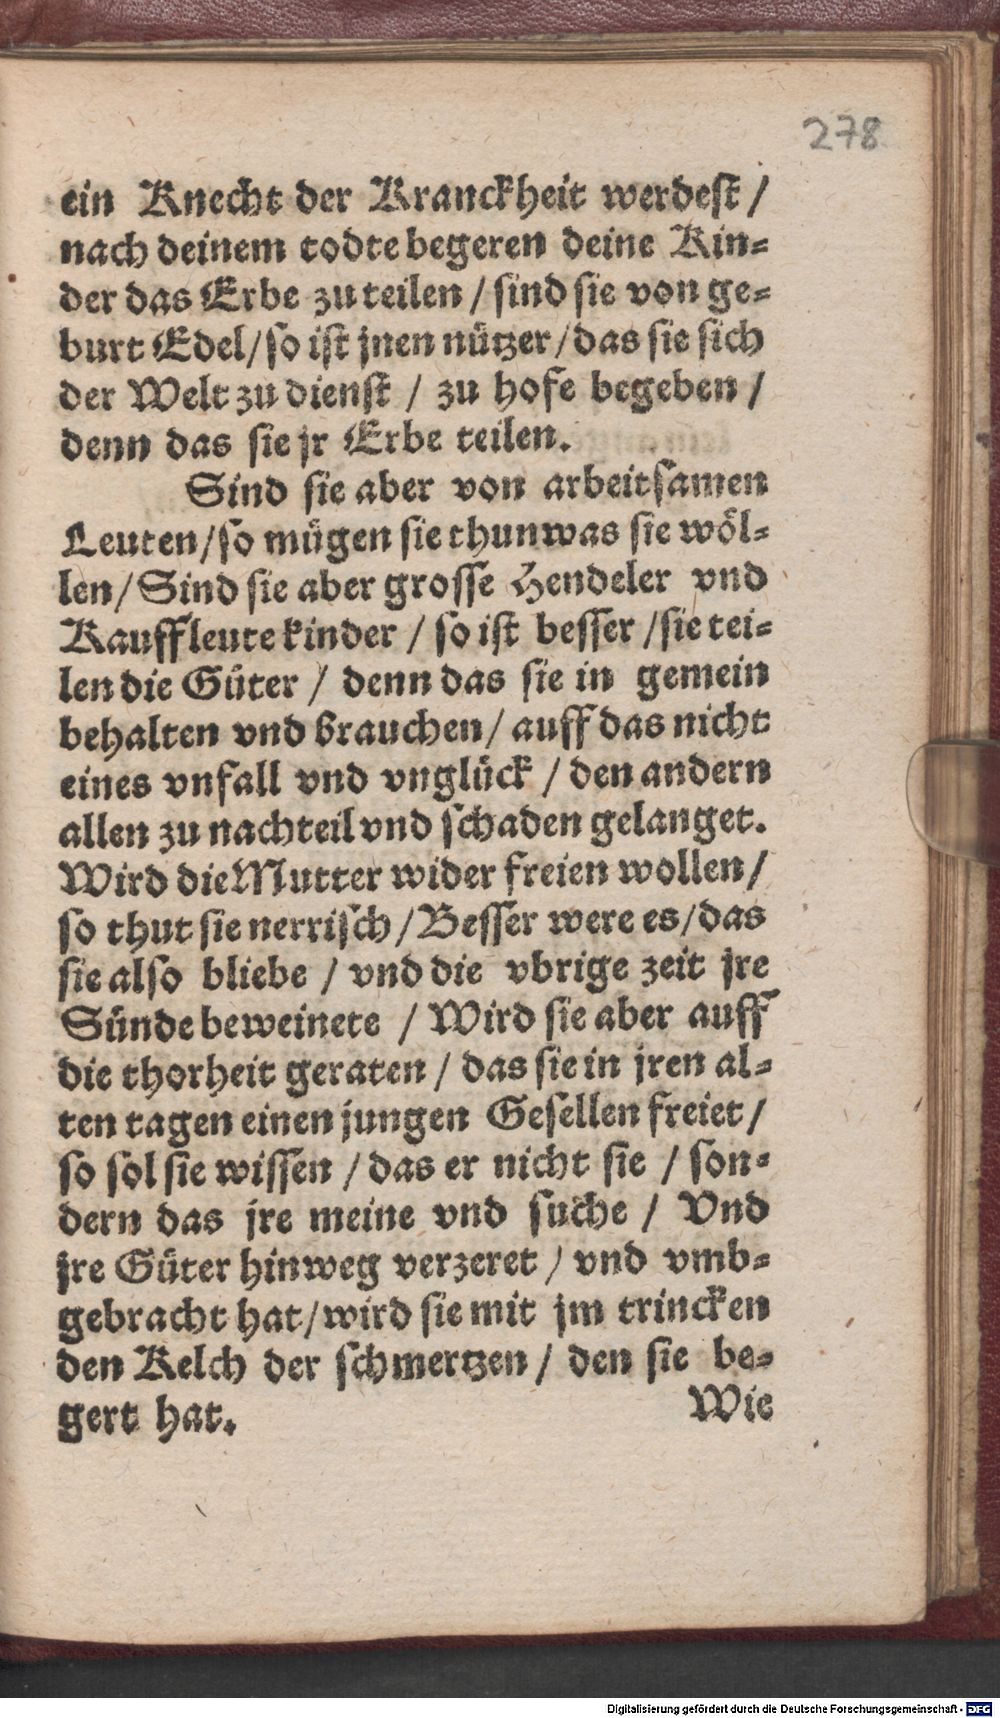 278
ein Knecht der Kranckheit werdest /
nach deinem todte begeren deine Kin⸗
der das Erbe zu teilen / sind sie von ge⸗
burt Edel / so ist jnen nützer / das sie sich
der Welt zu dienst / zu hofe begeben /
denn das sie jr Erbe teilen.
Sind sie aber von arbeitsamen
Leuten / so mügen sie thun was sie wöl⸗
len / Sind sie aber grosse Hendeler vnd
Kauffleute kinder / so ist besser / sie tei⸗
len die Güter / denn das sie in gemein
behalten vnd brauchen / auff das nicht
eines vnfall vnd vnglück / den andern
allen zu nachteil vnd schaden gelanget.
Wird die Mutter wider freien wollen /
so thut sie nerrisch / Besser were es / das
sie also bliebe / vnd die vbrige zeit jre
Sünde beweinete / Wird sie aber auff
die thorheit geraten / das sie in jren al⸗
ten tagen einen jungen Gesellen freiet /
so sol sie wissen / das er nicht sie / son⸗
dern das jre meine vnd suche / Vnd
jre Güter hinweg verzeret / vnd vmb⸗
gebracht hat / wird sie mit jm trincken
den Kelch der schmertzen / den sie be⸗
gert hat.
Wie
Digitalisierung gefördert durch die Deutsche Forschungsgemeinschaft - DFG